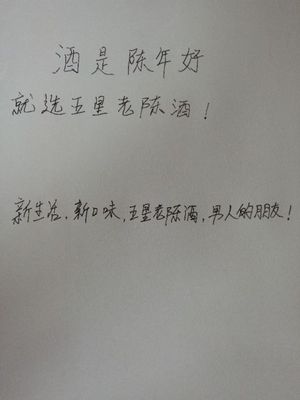 酒是陈年好
就选五星老陈酒！
新生活，新口味，五星老陈酒，男人的朋友！